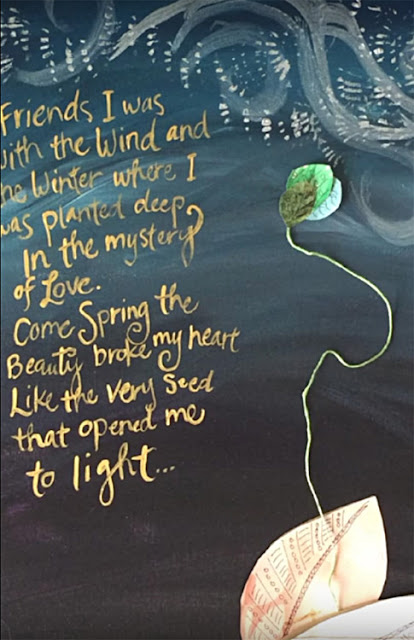 Friends I was
with the Wind and
the Winter where I
was planted deep
In the mystery
of Love.
Come Spring the
Beauty broke my heart
Like the very seed
that opened me
to light...